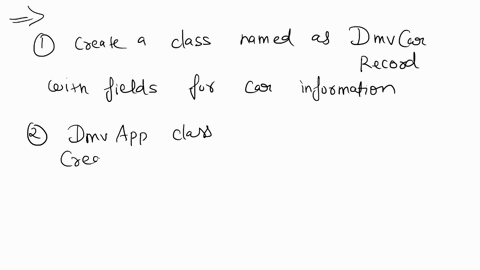 =>
① create a class named as DmvCar
Record
with fields for car information
② DmvApp class
Crea